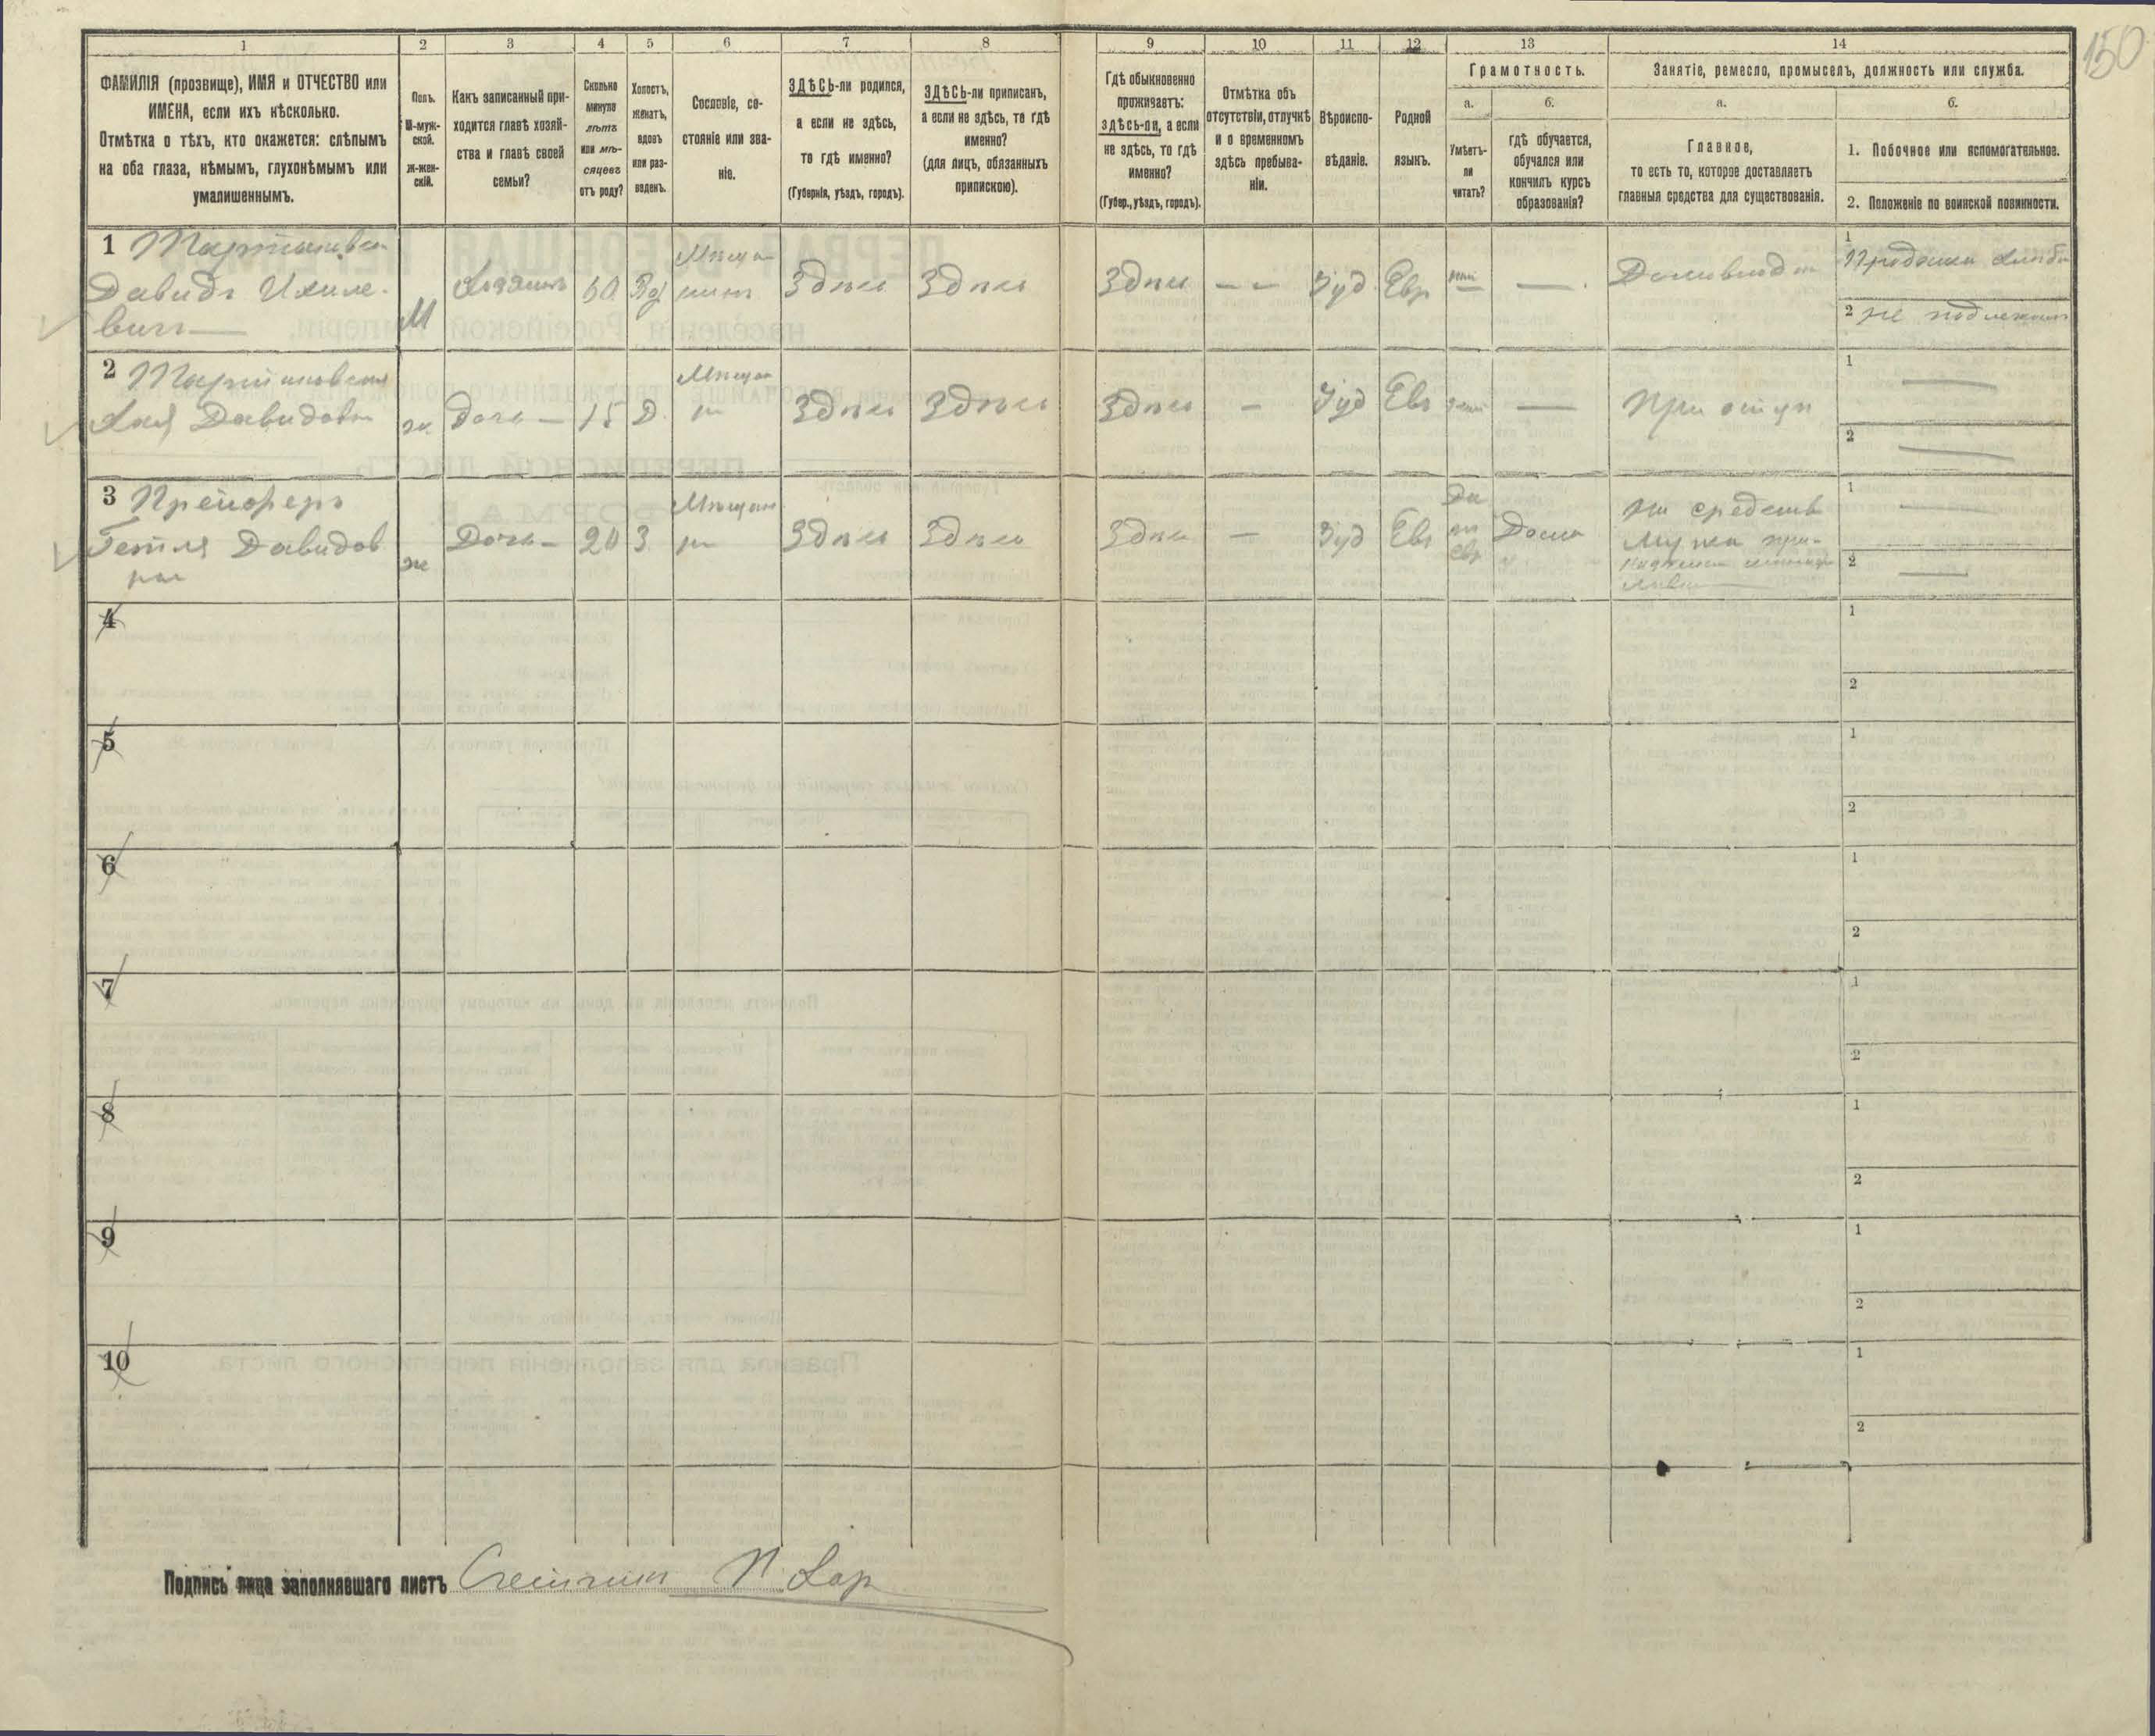 150
1
2
3
4
5
6
7
8
9
10
11
12
13
14
ФАМИЛІЯ (прозвище), ИМЯ и ОТЧЕСТВО или
ИМЕНА, если ихъ нѣсколько.
Отмѣтка о тѣхъ, кто окажется: слѣпымъ
на оба глаза, нѣмымъ, глухонѣмымъ или
умалишеннымъ.
Полъ.
М-муж-
ской.
ж-жен-
скій.
Какъ записанный при-
ходится главѣ хозяй-
ства и главѣ своей
семьи?
Сколько
минуло
лѣтъ
или мѣ-
сяцевъ
отъ роду?
Холостъ,
женатъ,
вдовъ
или раз-
веденъ.
Сословіе, со-
стояніе или зва-
ніе.
ЗДѢСЬ-ли родился,
а если не здѣсь,
то гдѣ именно?
(Губернія, уѣздъ, городъ).
ЗДѢСЬ-ли приписанъ,
а если не здѣсь, то гдѣ
именно?
(для лицъ, обязанныхъ
припискою).
Гдѣ обыкновенно
проживаетъ:
здѣсь-ли, а если
не здѣсь, то гдѣ
именно?
(Губер., уѣздъ, городъ).
Отмѣтка объ
отсутствіи, отлучкѣ
и о временномъ
здѣсь пребыва-
ніи.
Вѣроиспо-
вѣданіе.
Родной
языкъ.
Грамотность.
а.
б.
Умѣетъ-
ли
читать?
гдѣ обучается,
обучался или
кончилъ курсъ
образованія?
Занятіе, ремесло, промыселъ, должность или служба.
а.
б.
Главное,
то есть то, которое доставляетъ
главныя средства для существованія.
1. Побочное или вспомогательное.
2. Положеніе по воинской повинности.
1
Давидъ
вичъ
М
Хозяинъ
60
Мѣщан
Здѣсь
Здѣсь
Здѣсь
— —
Іуд.
Евр
—
1
Продажа хлѣба
2 не подлежит
2
Хая Давидовн
ж.
Дочь —
15
Д.
Мѣщан
Здѣсь
Здѣсь
Здѣсь
—
Іуд
Евр
—
При отцѣ
1 —
2 —
3 Прейгеръ
Давидов
на
ж
Дочь —
20
З.
Мѣщан
Здѣсь
Здѣсь
Здѣсь
—
Іуд
Евр
Да
по
евр
Дома
На средств
мужа при-
1 —
2 —
4
1
2
5
1
2
6
1
2
7
1
2
8
1
2
9
1
2
10
1
2
Подпись лица заполнявшаго листъ Счетчик